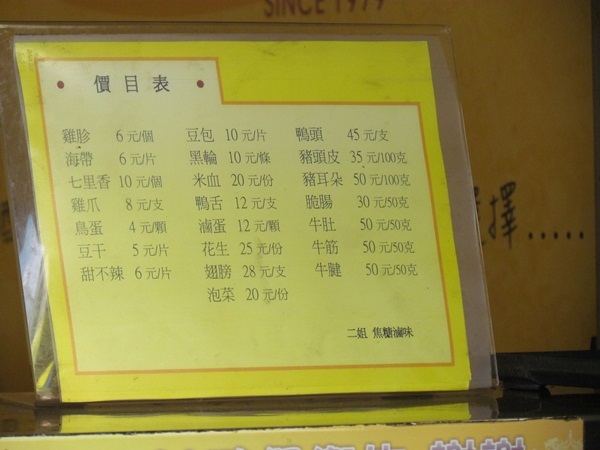 SINCE 1979
價目表
雞胗 6元/個 豆包 10元/片 鴨頭 45元/支
海帶 6元/片 黑輪 10元/條 豬頭皮 35元/100克
七里香 10元/個 米血 20元/份 豬耳朵 50元/100克
雞爪 8元/支 鴨舌 12元/支 脆腸 30元/50克
鳥蛋 4元/顆 滷蛋 12元/顆 牛肚 50元/50克
豆干 5元/片 花生 25元/份 牛筋 50元/50克
甜不辣 6元/片 翅膀 28元/支 牛腱 50元/50克
泡菜 20元/份
擇.....
二姐 焦糖滷味
謝謝